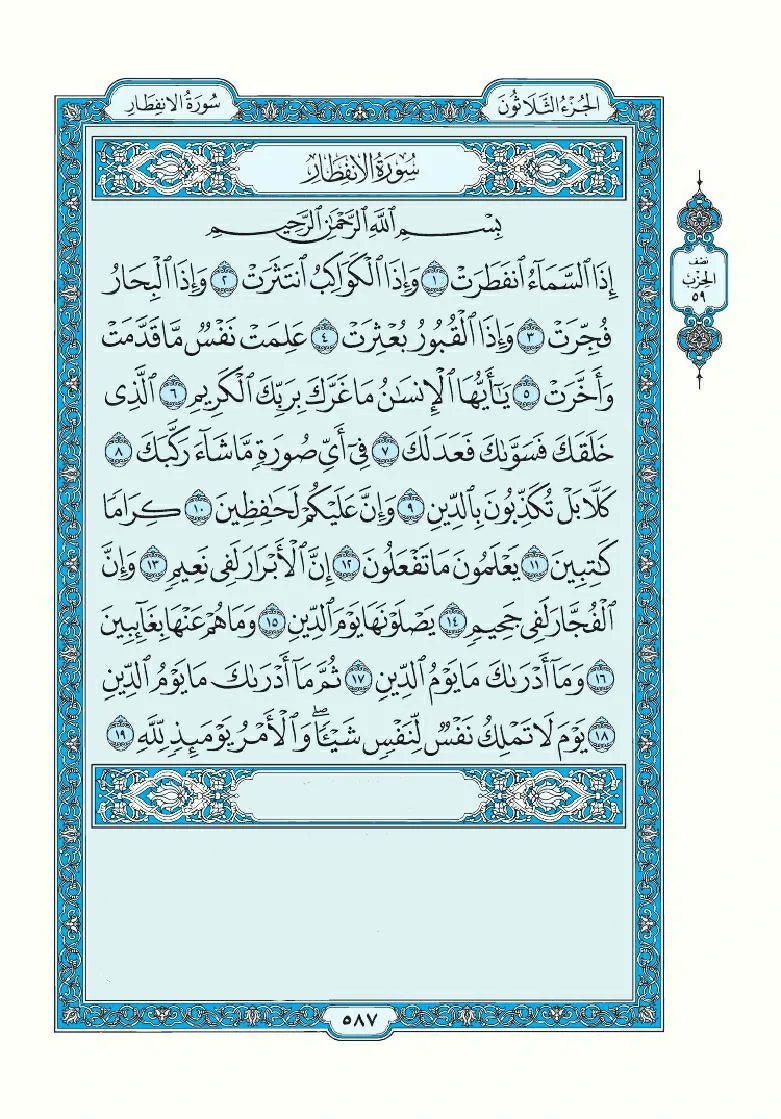 سُورَةُ الانفِطَارِ
الجُزْءُ الثَّلَاثُونَ
سُورَةُ الانفِطَارِ
بِسْمِ ٱللَّهِ ٱلرَّحْمَٰنِ ٱلرَّحِيمِ
إِذَا ٱلسَّمَآءُ ٱنفَطَرَتْ ١ وَإِذَا ٱلْكَوَاكِبُ ٱنتَثَرَتْ ٢ وَإِذَا ٱلْبِحَارُ
فُجِّرَتْ ٣ وَإِذَا ٱلْقُبُورُ بُعْثِرَتْ ٤ عَلِمَتْ نَفْسٌ مَّا قَدَّمَتْ
وَأَخَّرَتْ ٥ يَـٰٓأَيُّهَا ٱلْإِنسَـٰنُ مَا غَرَّكَ بِرَبِّكَ ٱلْكَرِيمِ ٦ ٱلَّذِى
خَلَقَكَ فَسَوَّىٰكَ فَعَدَلَكَ ٧ فِىٓ أَىِّ صُورَةٍ مَّا شَآءَ رَكَّبَكَ ٨
كَلَّا بَلْ تُكَذِّبُونَ بِٱلدِّينِ ٩ وَإِنَّ عَلَيْكُمْ لَحَـٰفِظِينَ ١٠ كِرَامًا
كَـٰتِبِينَ ١١ يَعْلَمُونَ مَا تَفْعَلُونَ ١٢ إِنَّ ٱلْأَبْرَارَ لَفِى نَعِيمٍ ١٣ وَإِنَّ
ٱلْفُجَّارَ لَفِى جَحِيمٍ ١٤ يَصْلَوْنَهَا يَوْمَ ٱلدِّينِ ١٥ وَمَا هُمْ عَنْهَا بِغَآئِبِينَ
١٦ وَمَآ أَدْرَىٰكَ مَا يَوْمُ ٱلدِّينِ ١٧ ثُمَّ مَآ أَدْرَىٰكَ مَا يَوْمُ ٱلدِّينِ
١٨ يَوْمَ لَا تَمْلِكُ نَفْسٌ لِّنَفْسٍ شَيْـًٔا ۖ وَٱلْأَمْرُ يَوْمَئِذٍ لِّلَّهِ ١٩
نصف
الحِزْب
٥٩
٥٨٧